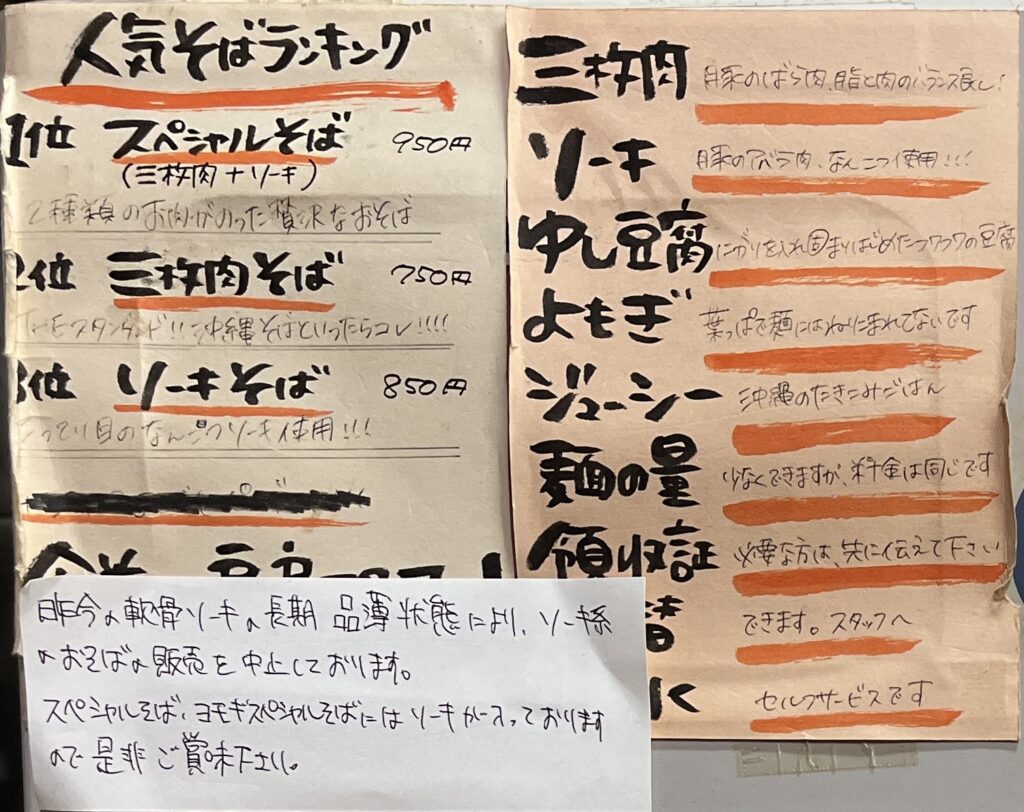 人気そばランキング
1位 スペシャルそば 950円
(三枚肉+ソーキ)
2種類のお肉がのった贅沢なおそば
2位 三枚肉そば 750円
THEスタンダード!!沖縄そばといったらコレ!!!!
3位 ソーキそば 850円
こってり目のなんこつソーキ使用!!!
昨今の軟骨ソーキの長期品薄状態により、ソーキ系
のおそばの販売を中止しております。
スペシャルそば、ヨモギスペシャルそばにはソーキが入っております
ので是非ご賞味下さい。
三枚肉 豚のばら肉、脂と肉のバランス良し!
ソーキ 豚のアバラ肉、なんこつ使用!!!
ゆし豆腐 にがりを入れ固まりはじめたフワフワの豆腐
よもぎ 葉っぱで麺にはねりこまれてないです
ジューシー 沖縄のたきこみごはん
麺の量 少なくできますが、料金は同じです
領収証 必要な方は、先に伝えて下さい
できます。スタッフへ
セルフサービスです